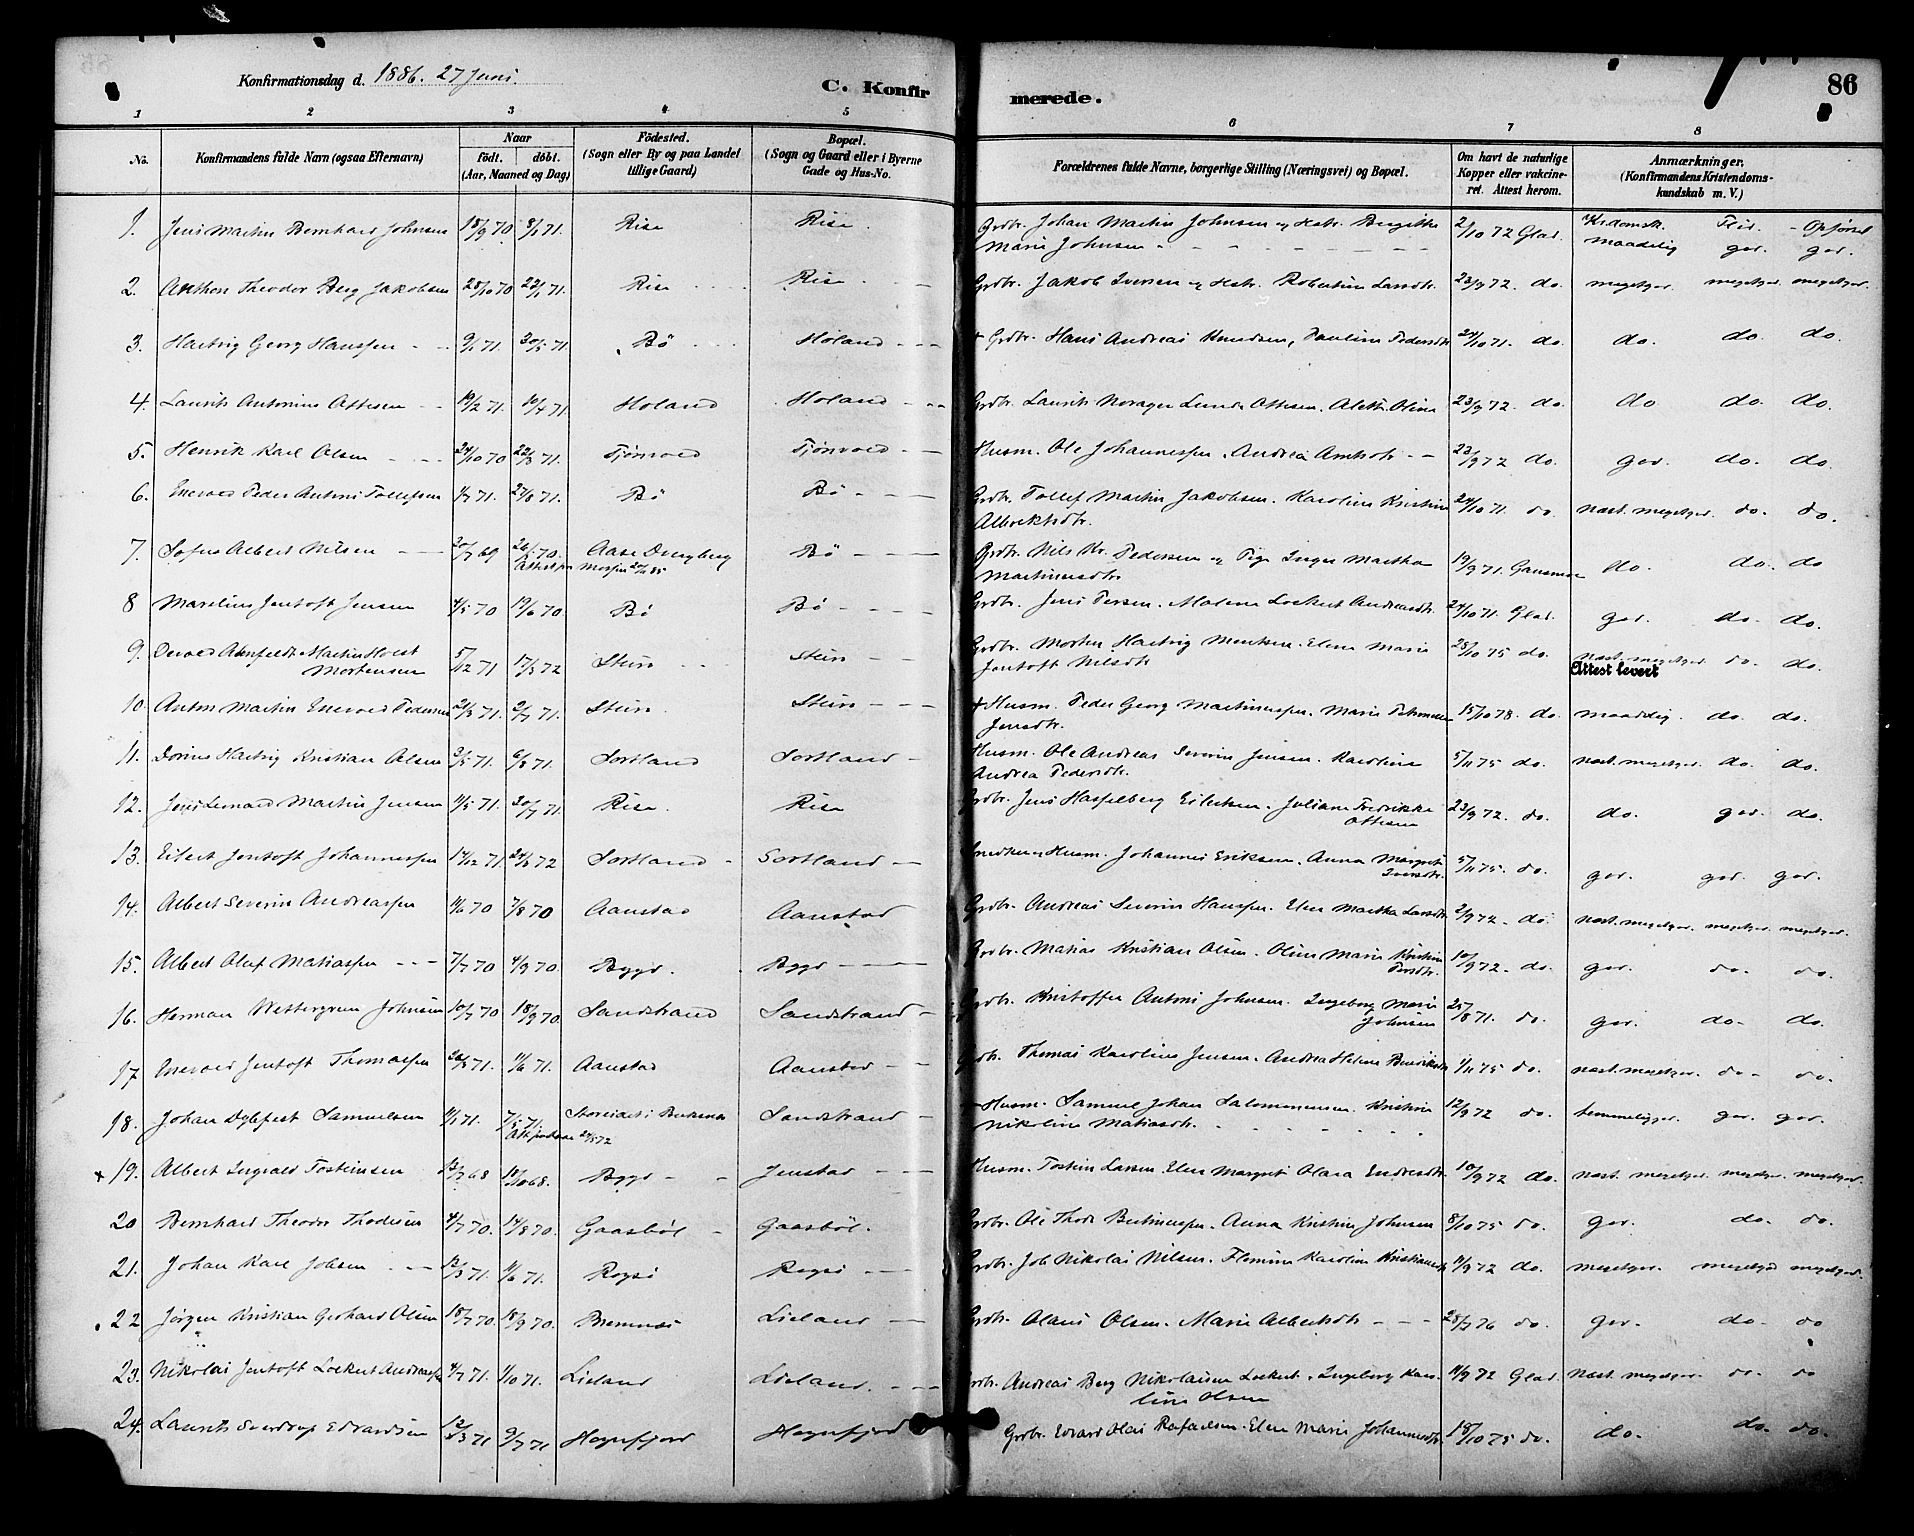 Konfirmationsdag d. 1886. 27 Juni.
C. Konfirmerede.
86
1 2 3 4 5 6 7 8
No.
Konfirmandens fulde Navn (ogsaa Efternavn)
Naar
födt. döbt.
(Aar, Maaned og Dag)
Födested.
(Sogn eller By og paa Landet
tillige Gaard)
Bopæl.
(Sogn og Gaard eller i Byerne
Gade og Hus-No.
Forældrenes fulde Navne, borgerlige Stilling (Næringsvei) og Bopæl.
Om havt de naturlige
Kopper eller vakcine-
ret. Attest herom.
Anmærkninger.
(Konfirmandens Kristendoms-
kundskab m. V.)
1. Jens Martin Bernhard Johnsen 18/9 70 8/1 71. Rise Rise. Grdbr. Johan Martin Johnsen og Hstr. Bergitte 2/10 72 Glad. Kr.domsk. Flid. - Opførsel
Marie Johnsen maadelig god. god.
2. Anthon Theodor Berg Jakobsen 28/10 70 22/1 71. Rise Rise. Grdbr. Jakob Iversen og Hstr. Robertine Larsdtr. 23/9 72. do. megetgod. megetgod. megetgod.
3. Hartvig Georg Hanssen 9/1 71. 20/5 71. Bö Holand + Grdbr. Hans Andreas Knudsen, Pauline Pedersdtr 24/10 71. do. do. do. do.
4. Laurits Antonius Ottesen 19/2 71. 10/4 71. Holand Holand Grdbr. Laurits Norager Lund Ottesen. Aleth Oline 23/9 72. do. do do. do.
5. Henrik Karl Olsen 24/10 70 22/3 71. Tjönvold Tjönvold Husm. Ole Johannessen. Andrea 23/9 72 do. god. do. do.
6. Enevold Peder Antoni Tollefsen 1/7 71. 27/8 71. Bö Bö Grdbr. Tollef Martin Jakobsen. Karoline Kristine 24/10 71. do. næst. megetgod. do. do.
Albrektsdtr.
7. Sofus Albert Nilsen 20/7 69 Aase Dverberg Bö Grdbr. Nils Kr. Pedersen og Pige Inger Martha 19/9 71. do. do. do
Martinusdtr
8 Marelius Jentoft Jensen 4/5 70 19/6 70. Bö Bö Grdbr. Jens Persen. Malene Lockert Andreasdtr. 24/10 71. Glad. god. do. do.
9. Martin Holst
Mortensen 5/12 71 17/3 72 Stein Stein Grdbr. Morten Hartvig Mentsen. Elen Marie 25/10 75 do. næst. megetgod. do. do.
Jentoft Nilsdtr Attest levert
10. Anton Martin Enevold Pedersen 21/3 71. 2/7 71. Stein. Stein + Husm. Peder Georg Martinussen. Marie 15/10 78. do. maadelig. do. do.
Jensdtr.
11. Dorius Hartvig Kristian Olsen 3/5 71. 6/8 71. Sortland Sortland Husm. Ole Andreas Severin Jensen. Karoline 5/11 75 do. næst. megetgod. do. do.
Andrea Pedersdtr.
12. Jens Leonard Martin Jensen 11/5 71. 30/7 71. Rise. Rise Grdbr. Jens Hasselberg Eilertsen. Juliane Fredrikke 23/9 72. do. do. god. do.
Ottesen
13. Eilert Jentoft Johannessen 14/12 71. 24/3 72 Sortland Sortland Snedker og Husm. Johannes Eriksen. Anna Margrete 5/11 75. do. god. god. god.
Iversdtr.
14. Albert Severin Andreassen 11/6 70 7/8 70 Aanstad Aanstad Grdbr. Andreas Severin Hanssen. Elen Martha Larsdtr 2/9 72. do. næst. megetgod. megetgod. megetgod.
15. Albert Oluf Matiassen 7/7 70 4/9 70. Bygd. Bygd Grdbr. Matias Kristian Olsen. Oline Marie Kristine 10/9 72. do. god. do. do.
Persdtr.
16. Herman Wettergreen Johnsen 10/7 70 18/9 70. Sandstrand Sandstrand Grdbr. Kristoffer Antoni Johnsen. Ingeborg Marie 25/8 71. do. god. do. do.
Johnsen
17 Enevold Jentoft Thomassen 26/3 71. 11/6 71. Aanstad Aanstad Grdbr. Thomas Karolius Jensen. Andrea Helene 1/11 75 do. næst. megetgod. do. do.
18. Johan Dybfest Samuelsen 1/1 71. 7/5 71. Sandstrand + Husm. Samuel Johan Salomonsen. Kristine 12/9 72 do. temmeliggod. god. god.
Nikoline Matiasdtr.
+ 19. Albert Ingvald Tosteinsen 13/7 68 18/10 68. Bygd Jenstad Husm. Tostein Larsen. Elen Margrete Olava Endresdtr 10/9 72 do. næst. megetgod. megetgod. megetgod.
20 Bernhard Theodor Thodesen 4/7 70. 14/8 70. Gaasböl Gaasböl. Grdbr. Ole Thode Bertinussen. Anna Kristine Johnsen 8/10 75 do. god. do. do.
21. Johan Karl Jobsen 12/3 71. 11/6 71. Rogsö Rogsö Grdbr. Job Nikolai Nilsen. Flemine Karoline Kristiansdtr 11/9 72 do. megetgod. megetgod megetgod.
22 Jörgen Kristian Gerhard Olsen 18/7 70. 18/9 70. Bremnes Lieland Grdbr. Olaus Olsen. Marie Albertsdtr 28/7 76 do. god. do. do
23. Nikolai Jentoft Lockert Andreassen 4/7 71. 1/10 71. Lieland Lieland. Grdbr. Andreas Berg Nikolaisen Lockert. Ingeborg Karo- 11/9 72 Glad. næst. megetgod. do. do
line Olsen
24. Laurits Sverdrup Edvardsen 12/3 71 9/7 71 Hognfjord Hognfjord Grdbr. Edvard Olai Rafaelsen. Elen Marie Johannesdtr. 18/10 75 do. do. do. do.